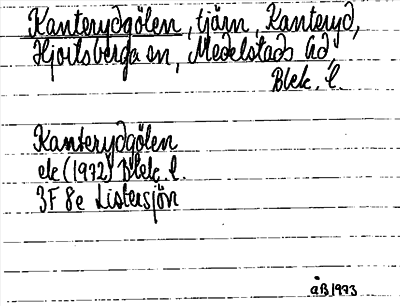 Kanterydgölen, tjärn, Kanteryd,
Hjortsberga sn, Medelstads hd,
Blek. l.
Kanterydgölen
ek (1972) Blek. l.
3F 8e Listersjön
ÅB 1973